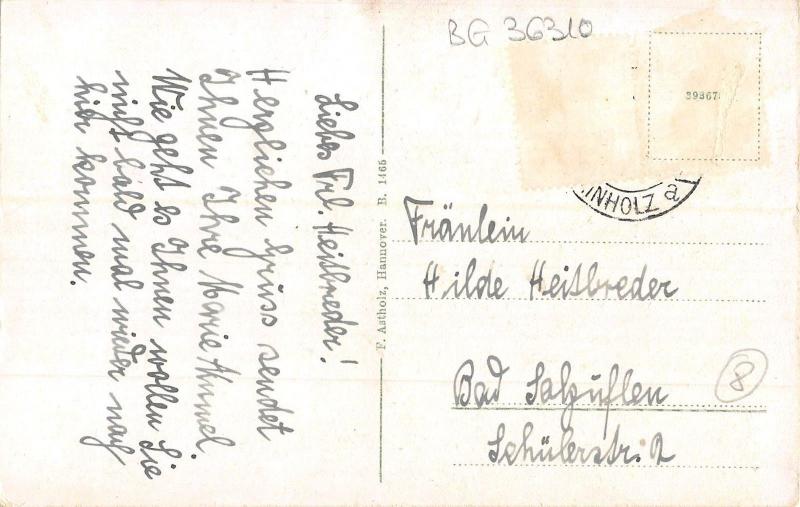 BG 36310
39867
INHOLZ a
Liebes Frl. Heitbreder!
Herzlichen Gruss sendet
Ihnen Ihre Marie
Wie geht es Ihnen wollen Sie
nicht bald mal wieder nach
hier kommen.
F. Astholz, Hannover. B. 1465
Fräulein
Hilde Heitbreder
Bad Salzuflen
Schülerstr. 2
8